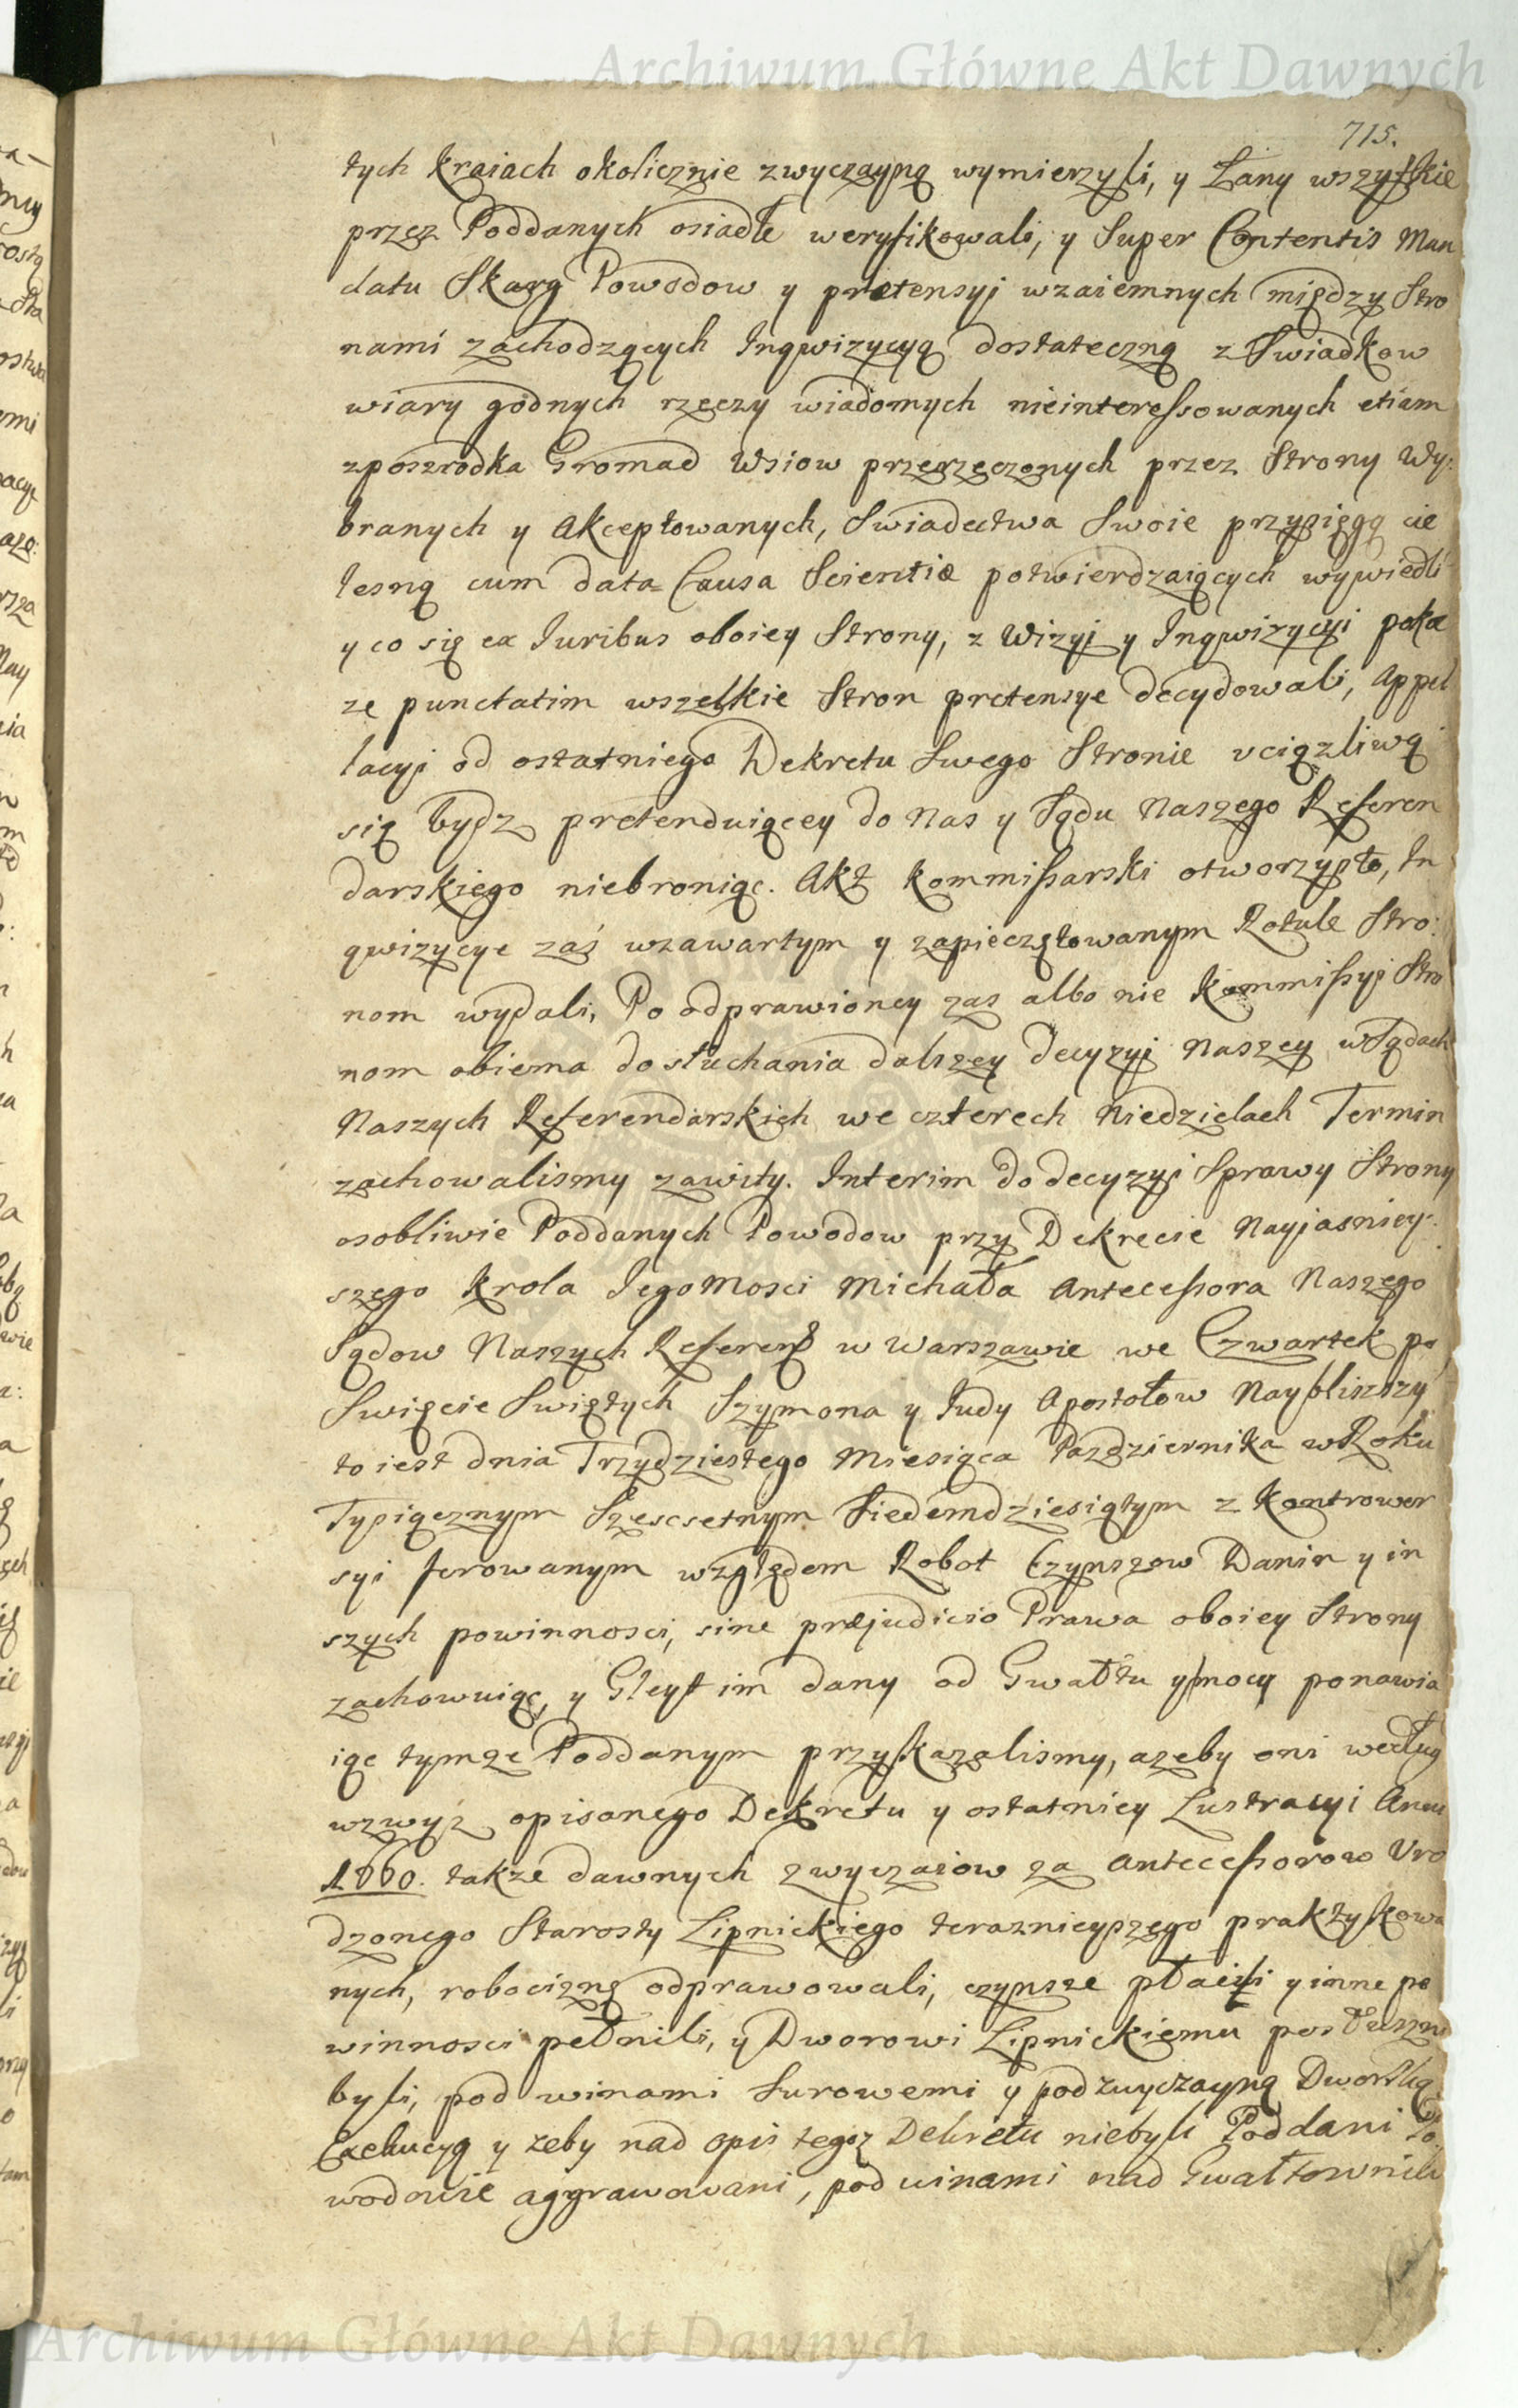 Archiwum Główne Akt Dawnych
715.
tych kraiach okolicznie zwyczayną wymierzyli, y Łany wszystkie
przez Poddanych osiadłe weryfikowali, y Super Contentis Man
datu Skarg Powodow y prætensyi wzaiemnych między Stro
nami zachodzących Inqwizycyą dostateczną z Swiadkow
wiary godnych rzeczy wiadomych nieinteressowanych etiam
zposzrodka Gromad Wsiow przerzeczonych przez Strony Wy:
branych y Akceptowanych, Swiadectwa Swoie przysięgą cie
lesną cum data Causa Scientiæ potwierdzaiących wywiedli
y co się ex Juribus oboiey Strony, z Wizyi y Inqwizycyi poka
ze punctatim wszelkie Stron pretensye decydowali, Appel
lacyi od ostatniego Dekretu Swego Stronie uciązliwą
się bydz pretenduiącey do Nas y Sądu Naszego Referen
darskiego niebroniąc. Akt kommissarski otworzysto, In
qwizycye zaś wzawartym y zapieczętowanym Rotule Stro:
nom wydali, Po odprawioney zas albo nie kommissyi Stro
nom obiema do słuchania dalszey decyzyi Naszey w Sądach
Naszych Referendarskich we czterech Niedzielach Termin
zachowalismy zawity. Interim do decyzyi Sprawy Strony
osobliwie Poddanych Powodow przy Dekrecie Nayjasniey:
szego krola JegoMosci Michała Antecessora Naszego
Sądow Naszych Referend w Warszawie we Czwartek po
Swięcie Swiętych Szymona y Judy Apostołow Naybliszszy
to iest dnia Trzydziestego Miesiąca Pazdziernika w Roku
Tysiącznym Szescsetnym Siedemdziesiątym z kontrower
syi ferowanym względem Robot Czynszow Danin y in
szych powinnosci, sine præjudicio Prawa oboiey Strony
zachowuiąc, y Gleyt im dany od Gwałtu y mocy ponawia
iąc tymze Poddanym przyskazalismy, azeby oni według
wzwyz opisanego Dekretu y ostatniey Lustracyi Anni
1660. takze dawnych zwyczaiow za Antecessorow Uro
dzonego Starosty Lipnickiego teraznieyszego praktykowa
nych, robociznę odprawowali, czynsze płacili y inne po
winnosci pełnili, y Dworowi Lipnickiemu posłuszni
byli, pod winami Surowemi y pod zwyczayną Dworską
Exekucyą y zeby nad opis tegoz Dekretu niebyli Poddani Po
wodowie aggrawowani, pod winami nad Gwałtownik
Archiwum Główne Akt Dawnych